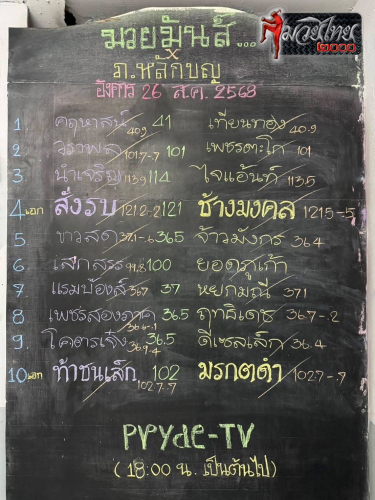 มวยไทย
๒๐๐๐
มวยมันส์...
x
ภ.หลักบุญ
อังคาร 26 ส.ค. 2568
1. คฤหาสน์ 40.9 41 เทียนทอง 40.9
2 วราพล 101.7-.7 101 เพชรตะโก 101
3. นำเจริญ 113.9 114 ไจแอ้นท์ 113.5
4.เอก สั่งรบ 121.2-.2 121 ช้างมงคล 121.5-.5
5. ขาวสด 37.1-.6 36.5 จ้าวมังกร 36.4
6. เสกสรร 99.8 100 ยอดภูเก้า
7. แรมบ้องส์ 36.7 37 หยกมณี 37.1
8 เพชรสองภาค 36.6-.1 36.5 ฤทธิเดช 36.7-.2
9. โคตรเจ๋ง 36.9-.4 36.5 ดีเซลเล็ก 36.4
10.เอก ท้าชนเล็ก 102.7-.7 102 มรกตดำ 102.7-.7
PPYde-TV
(18:00 น. เป็นต้นไป)